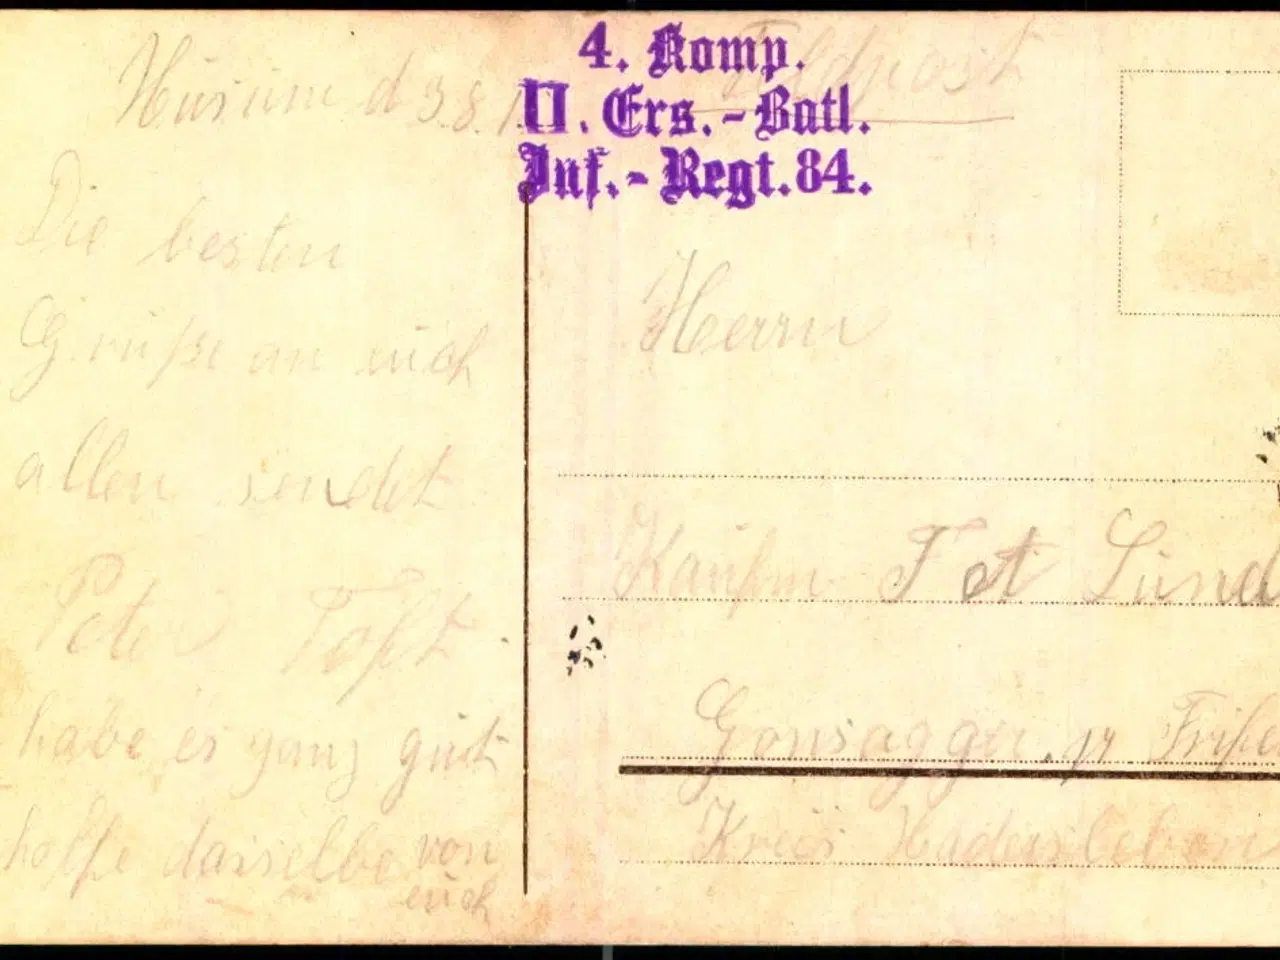 Husum d 3.8.1
Die besten
Grüße an euch
allen sendet
Peter Toft.
habe es ganz gut
hoffe dasselbe von
euch
4. Komp.
II. Ers.-Batl.
Inf.-Regt. 84.
Feldpost
Herrn
Kaufm Lund
Gonsagger. pr
Kreis Hadersleben